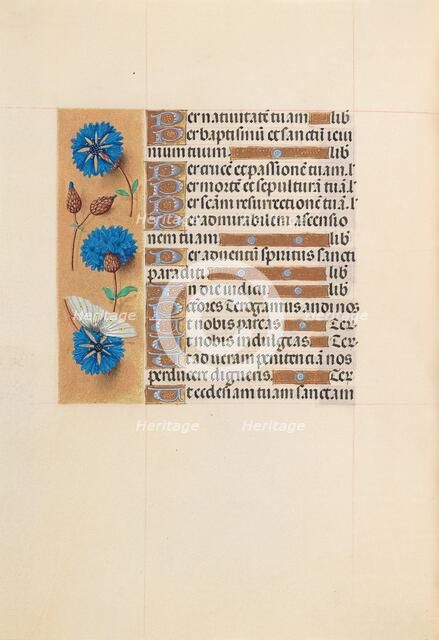 Per nativitatē tuam lib̄
Per baptismū et sanctū ieiu
nium tuum. lib̄
Per crucē et passionē tuam. l'
Per mortē et sepulturā tuā. l'
Per scām resurrectionē tuā. l'
Per admirabilem ascensio
nem tuam lib̄
Per adventū spiritus sancti
paracliti lib̄
In die iudicii lib̄
Peccatores Te rogamus audi nos
Ut nobis parcas Te r
Ut nobis indulgeas Te r
Ut ad veram penitenciā nos
perducere digneris Te r
Ut ecclesiam tuam sanctam
Heritage Heritage
Heritage Heritage
Heritage Heritage